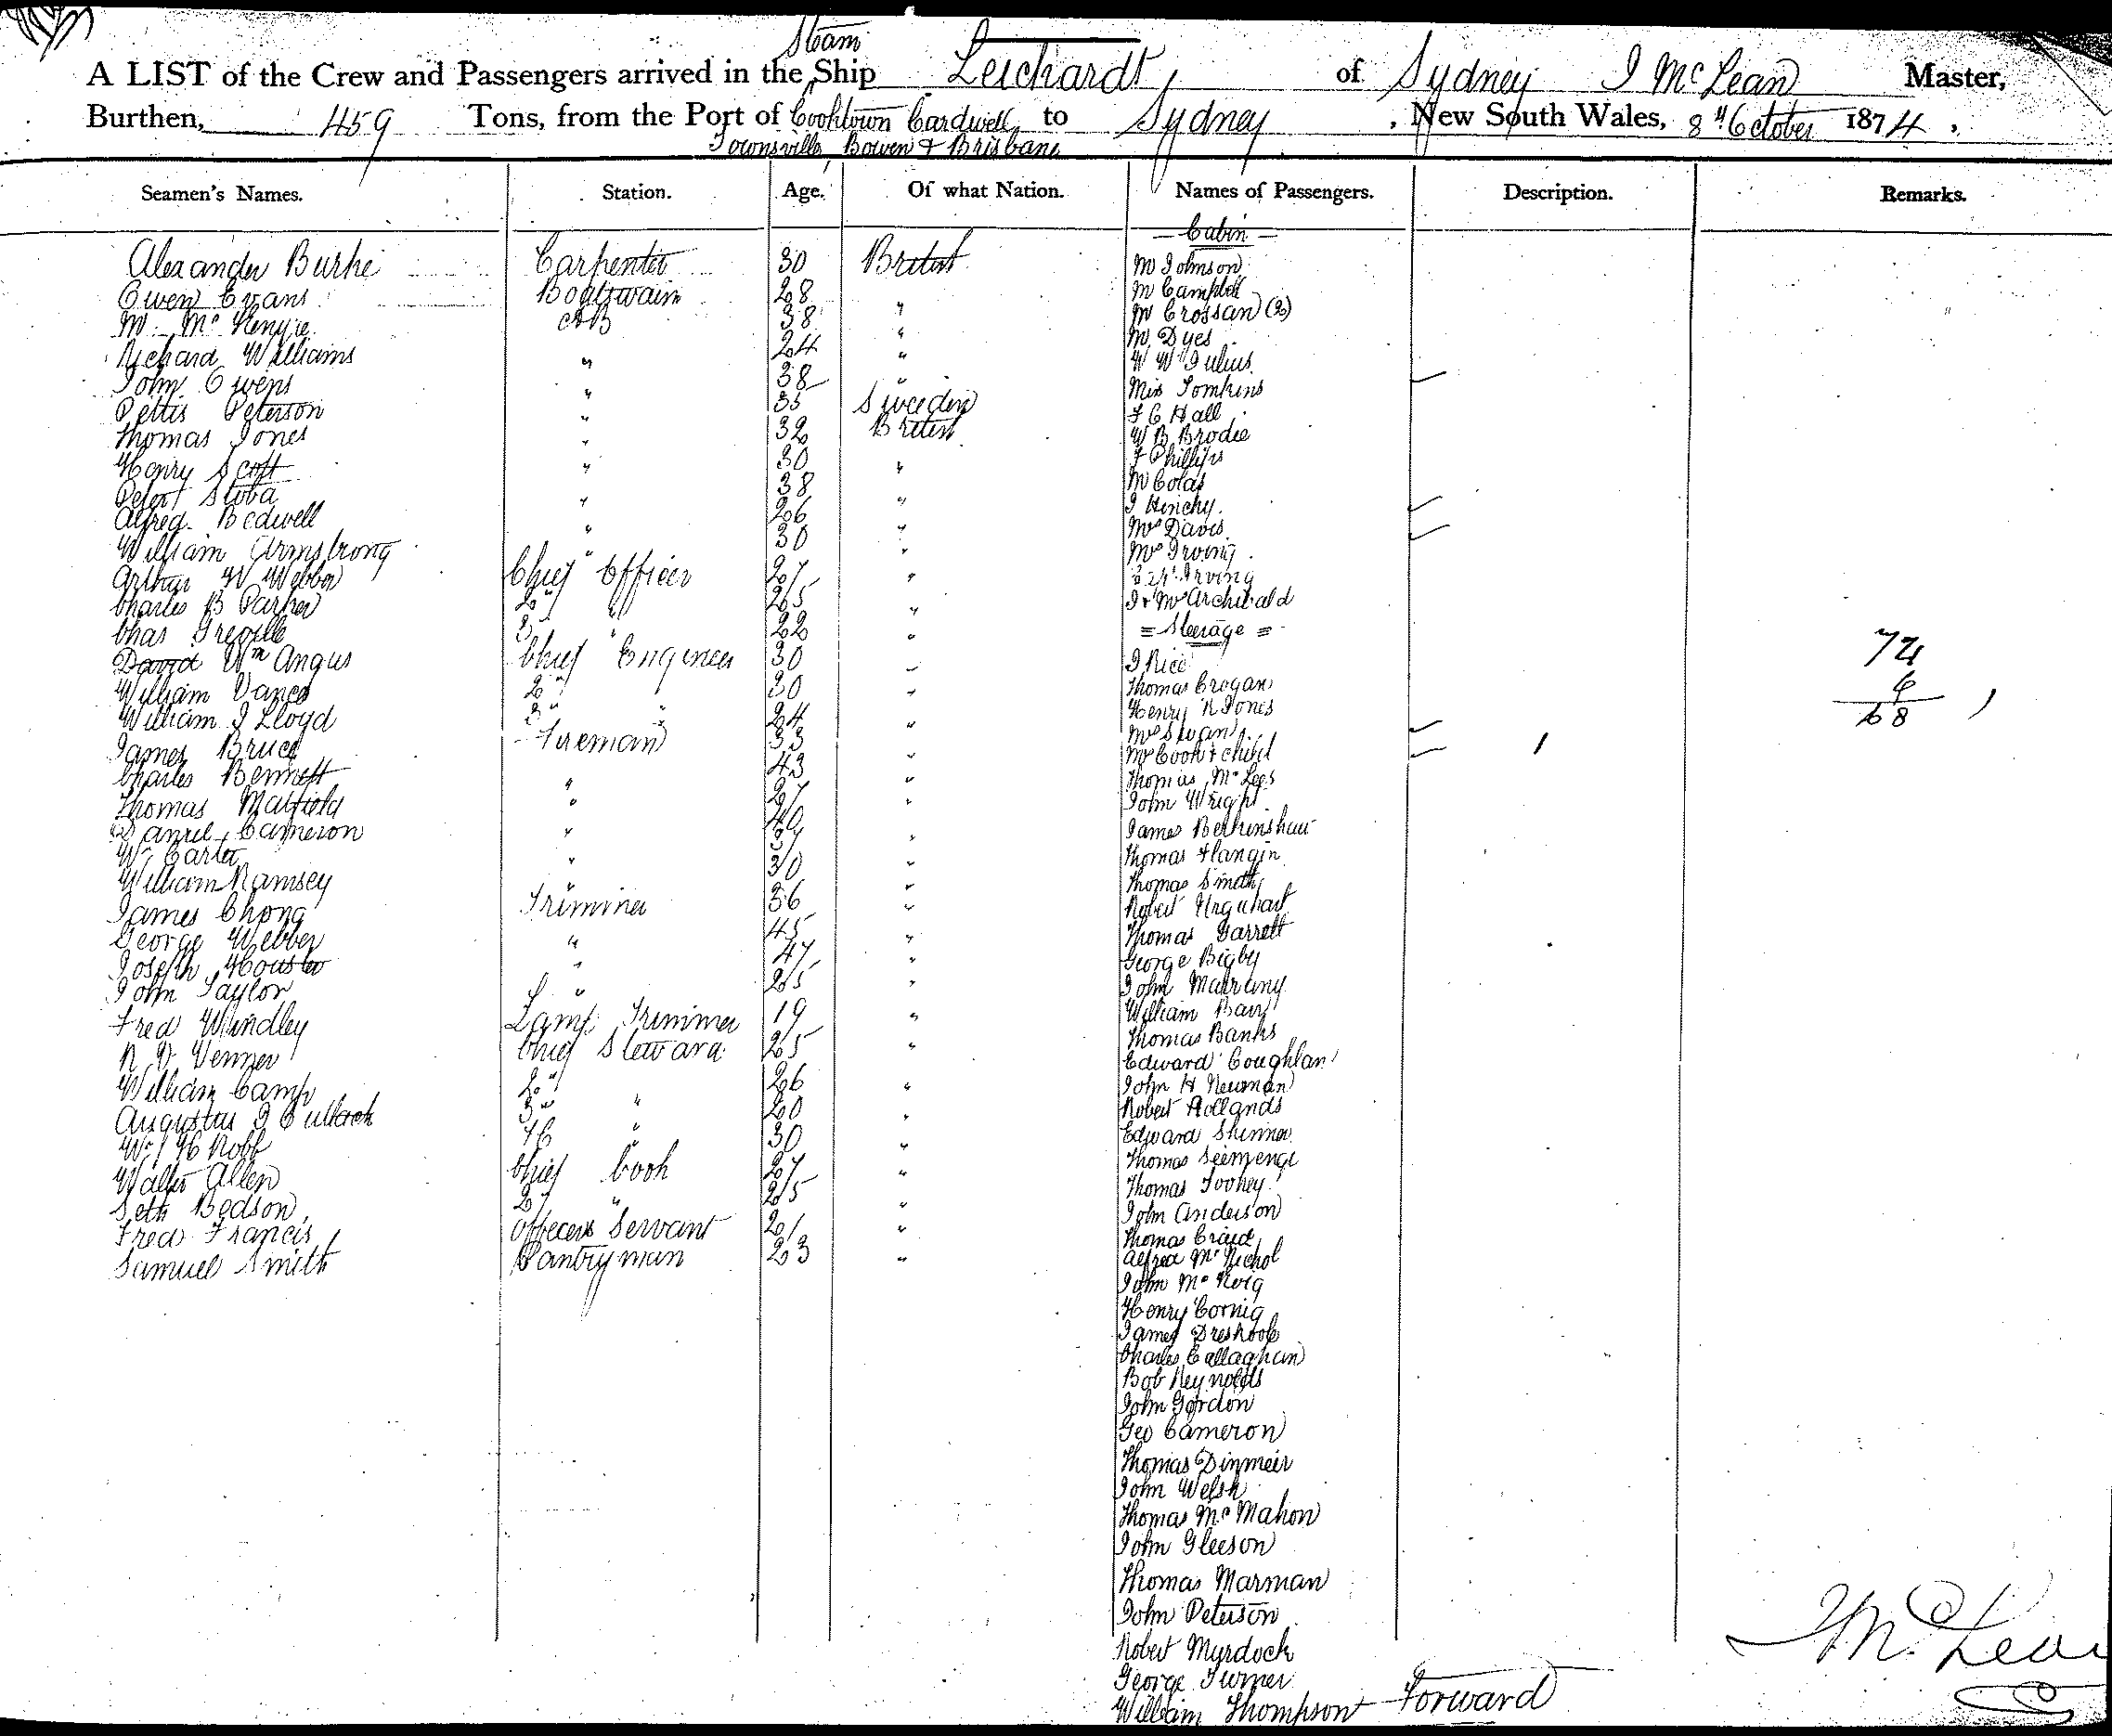 Steam
A LIST of the Crew and Passengers arrived in the Ship Leichardt of Sydney J McLean Master,
Burthen, 459 Tons, from the Port of Cooktown Cardwell to Sydney, New South Wales, 8th October 1874,
Townsville, Bowen & Brisbane
Seamen's Names. Station. Age. Of what Nation. Names of Passengers. Description. Remarks.
Cabin
Alexander Burke Carpenter 30 British Mr Johnson
Owen Evans Boatswain 28 " Mr Campbell
M. McKenzie AB 38 " Mr Crossan (2)
Richard Williams " 24 " Mr Dyes
John Owens " 38 " W W Julius
Pettis Peterson " 35 Sweden Miss Tomkins
Thomas Jones " 32 British F C Hall
Henry Scott " 30 " W B Brodie
Peter Stoba " 38 " F Phillips
Alfred Bedwell " 26 " Mr Colas
William Armstrong " 30 " J Henchy
Arthur W Webber Chief Officer 27 " Mrs Davis
Charles B Parker 2nd " 25 " Mrs Irving
Chas Greville 3 " 22 " Irving
David Wm Angus Chief Engineer 30 " J & Mrs Archibald
William Vance 2nd " 30 " = Steerage =
William J Lloyd 3rd " 24 " J Rice
James Bruce Fireman 33 " Thomas Crogan
Charles Bennett " 43 " Henry R Jones
Thomas Matfield " 27 " Mrs Swan
Daniel Cameron " 40 " Mrs Cook & child
Wm Carter " 37 " Thomas McLees
William Ramsey " 30 " John Wright
James Chong Trimmer 36 " James Berkinshaw
George Webber " 45 " Thomas Flangin
Joseph " 47 " Thomas Smith
John Taylor " 25 " Robert Urquhart
Fred Windley Lamp Trimmer 19 " Thomas Garrett
R V Venner Chief Steward 25 " George Bigby
William Camp 2nd " 26 " John
Augustus J 3rd " 20 " William Barry
Wm H Robb 4th " 30 " Thomas Banks
Walter Allen Chief Cook 27 " Edward Coughlan
Seth Bedson 2nd " 25 " John H Newman
Fred Francis Officers Servant 20 " Robert Hollands
Samuel Smith Pantryman 23 " Edward Skinner
Thomas
Thomas Toohey
John Anderson
Thomas Craid
Alfred McNichol
John McKoig
Henry Cornig
James
Charles Callaghan
Bob Reynolds
John Gordon
Geo Cameron
Thomas Dinmeir
John Welsh
Thomas McMahon
John Gleeson
Thomas Marman
John Peterson
Robert Myrdock
George Turner
William Thompson Forward
74
6
68
J McLean